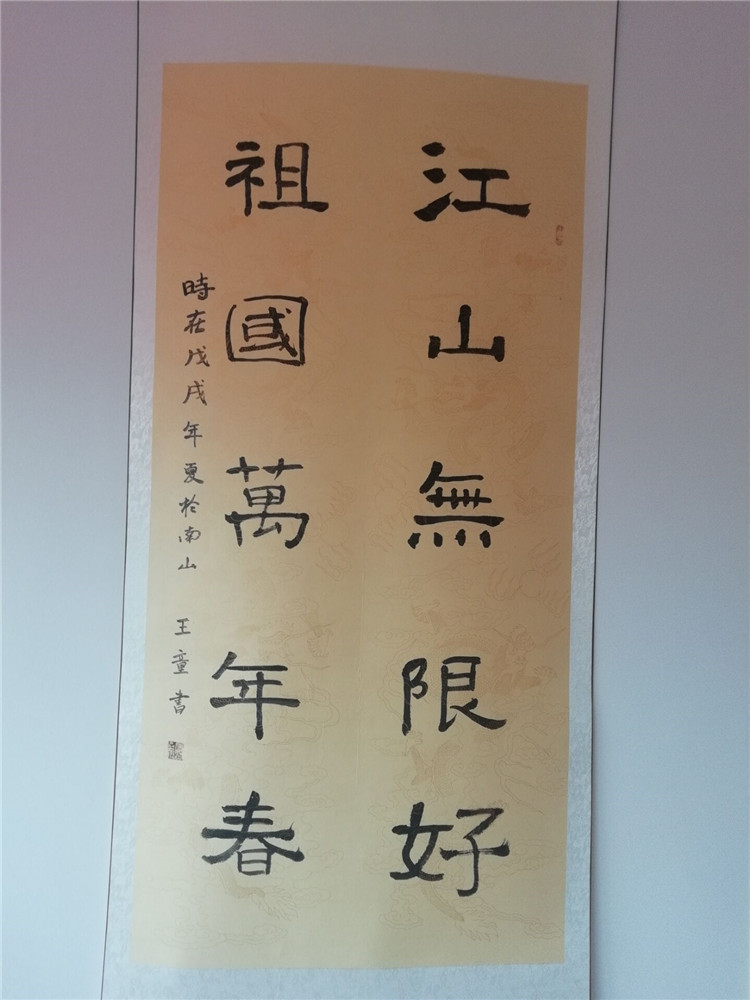 江山無限好
祖國萬年春
時在戊戌年夏於南山
王童書